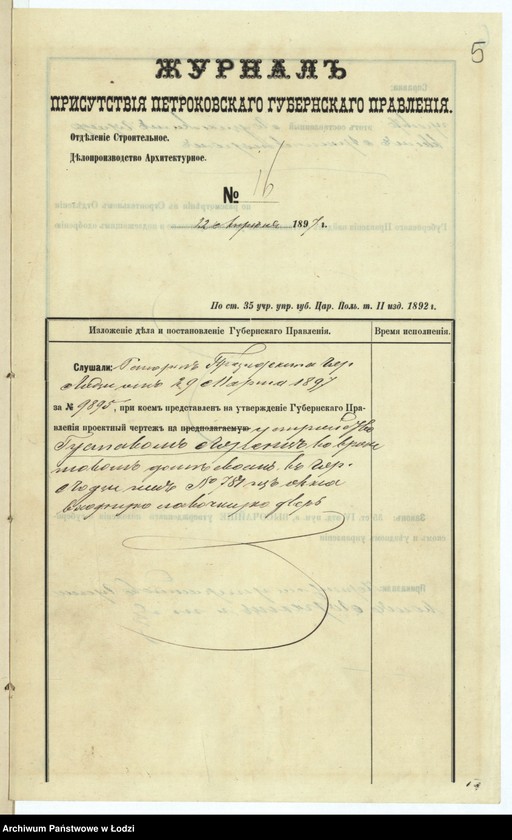 5
ЖУРНАЛЪ
ПРИСУТСТВІЯ ПЕТРОКОВСКАГО ГУБЕРНСКАГО ПРАВЛЕНІЯ.
Отдѣленіе Строительное.
Дѣлопроизводство Архитектурное.
№ 16
22 апрѣля 1897 г.
По ст. 35 учр. упр. губ. Цар. Поль. т. II изд. 1892 г.
Изложеніе дѣла и постановленіе Губернскаго Правленія.
Время исполненія.
Слушали: Рапортъ Президента гор.
Лодзи отъ 29 Марта 1897
за № 9895, при коемъ представленъ на утвержденіе Губернскаго Пра-
вленія проектный чертежъ на предполагаемую устройство
Густавомъ во фрон
товомъ домѣ своемъ въ гор.
Лодзи подъ № 787 изъ окна
Archiwum Państwowe w Łodzi